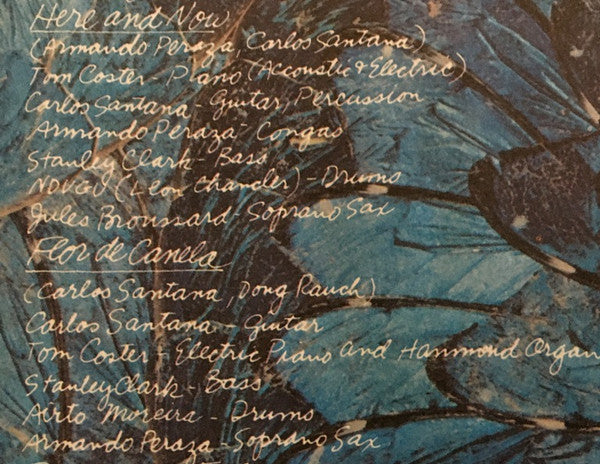 Here and Now
(Armando Peraza, Carlos Santana)
Tom Coster - Piano (Accoustic & Electric)
Carlos Santana - Guitar, Percussion
Armando Peraza - Congas
Stanley Clark - Bass
NDUGU (Leon Chancler) - Drums
Jules Broussard - Soprano Sax
Flor de Canela
(Carlos Santana, Doug Rauch)
Carlos Santana - Guitar
Tom Coster - Electric Piano and Hammond Organ
Stanley Clark - Bass
Airto Moreira - Drums
Armando Peraza - Soprano Sax